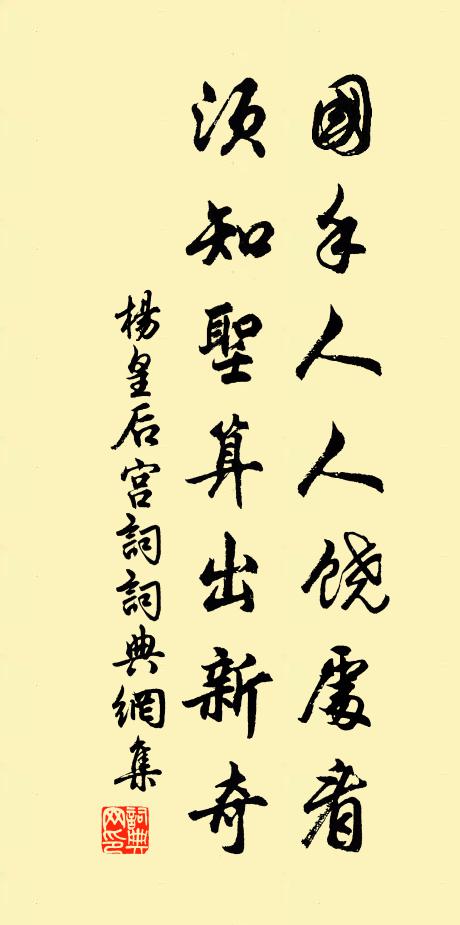 國手人人饒處着
須知聖算出新奇
楊皇后宮詞詞典網集
詞典网印